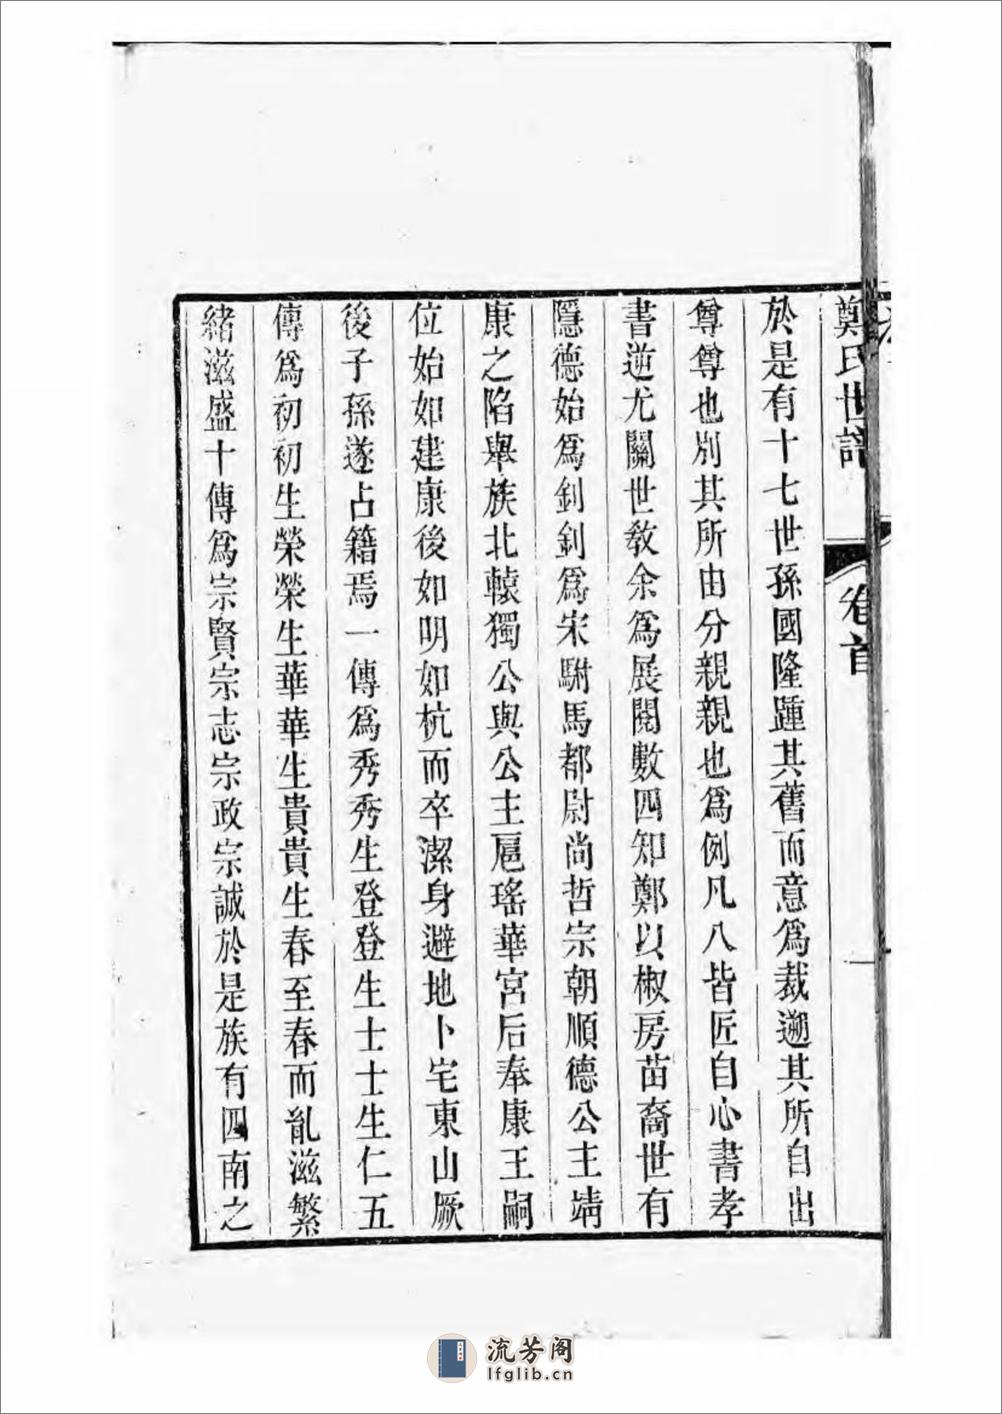 鄭氏世譜 卷首 一
於是有十七世孫國隆踵其舊而意爲裁遡其所自出
尊尊也別其所由分親親也爲例凡八皆匠自心書孝
書逆尤關世教余爲展閱數四知鄭以椒房苗裔世有
隱德始爲釗釗爲宋駙馬都尉尚哲宗朝順德公主靖
康之陷舉族北轅獨公與公主扈瑤華宮后奉康王嗣
位始如建康後如明如杭而卒潔身避地卜宅東山厥
後子孫遂占籍焉一傳爲秀秀生登登生士士生仁五
傳爲初初生榮榮生華華生貴貴生春至春而胤滋繁
緒滋盛十傳爲宗賢宗志宗政宗誠於是族有四南之
流芳阁
lfglib.cn